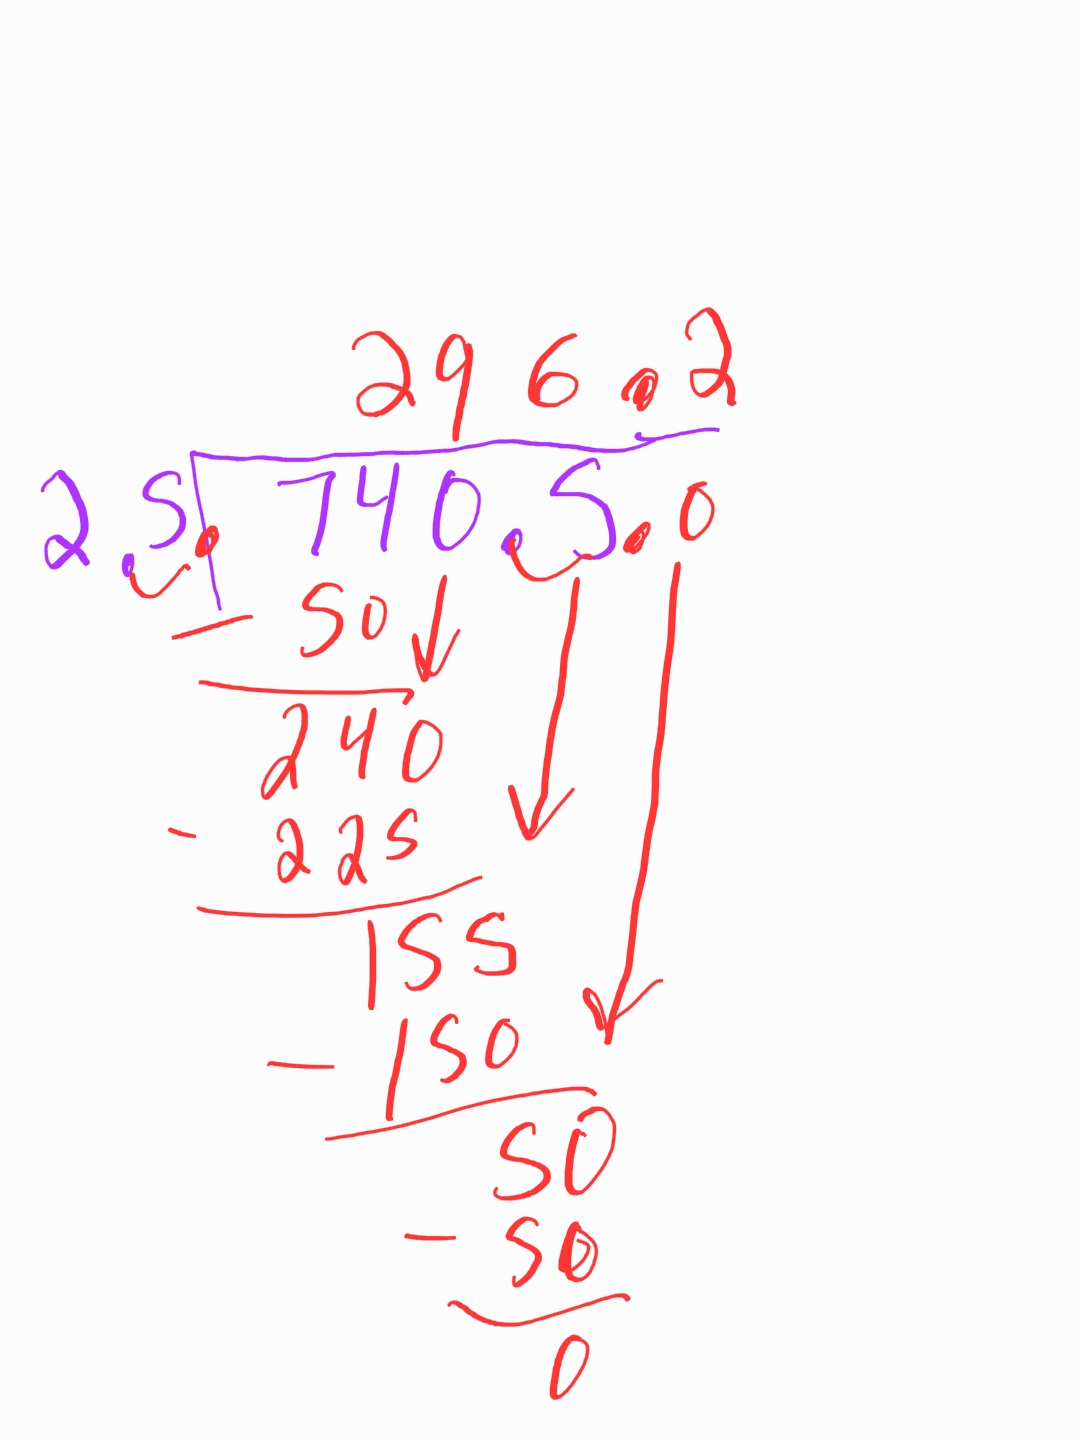 296.2
2.5. 740.5.0
- 50
240
- 225
155
- 150
50
- 50
0